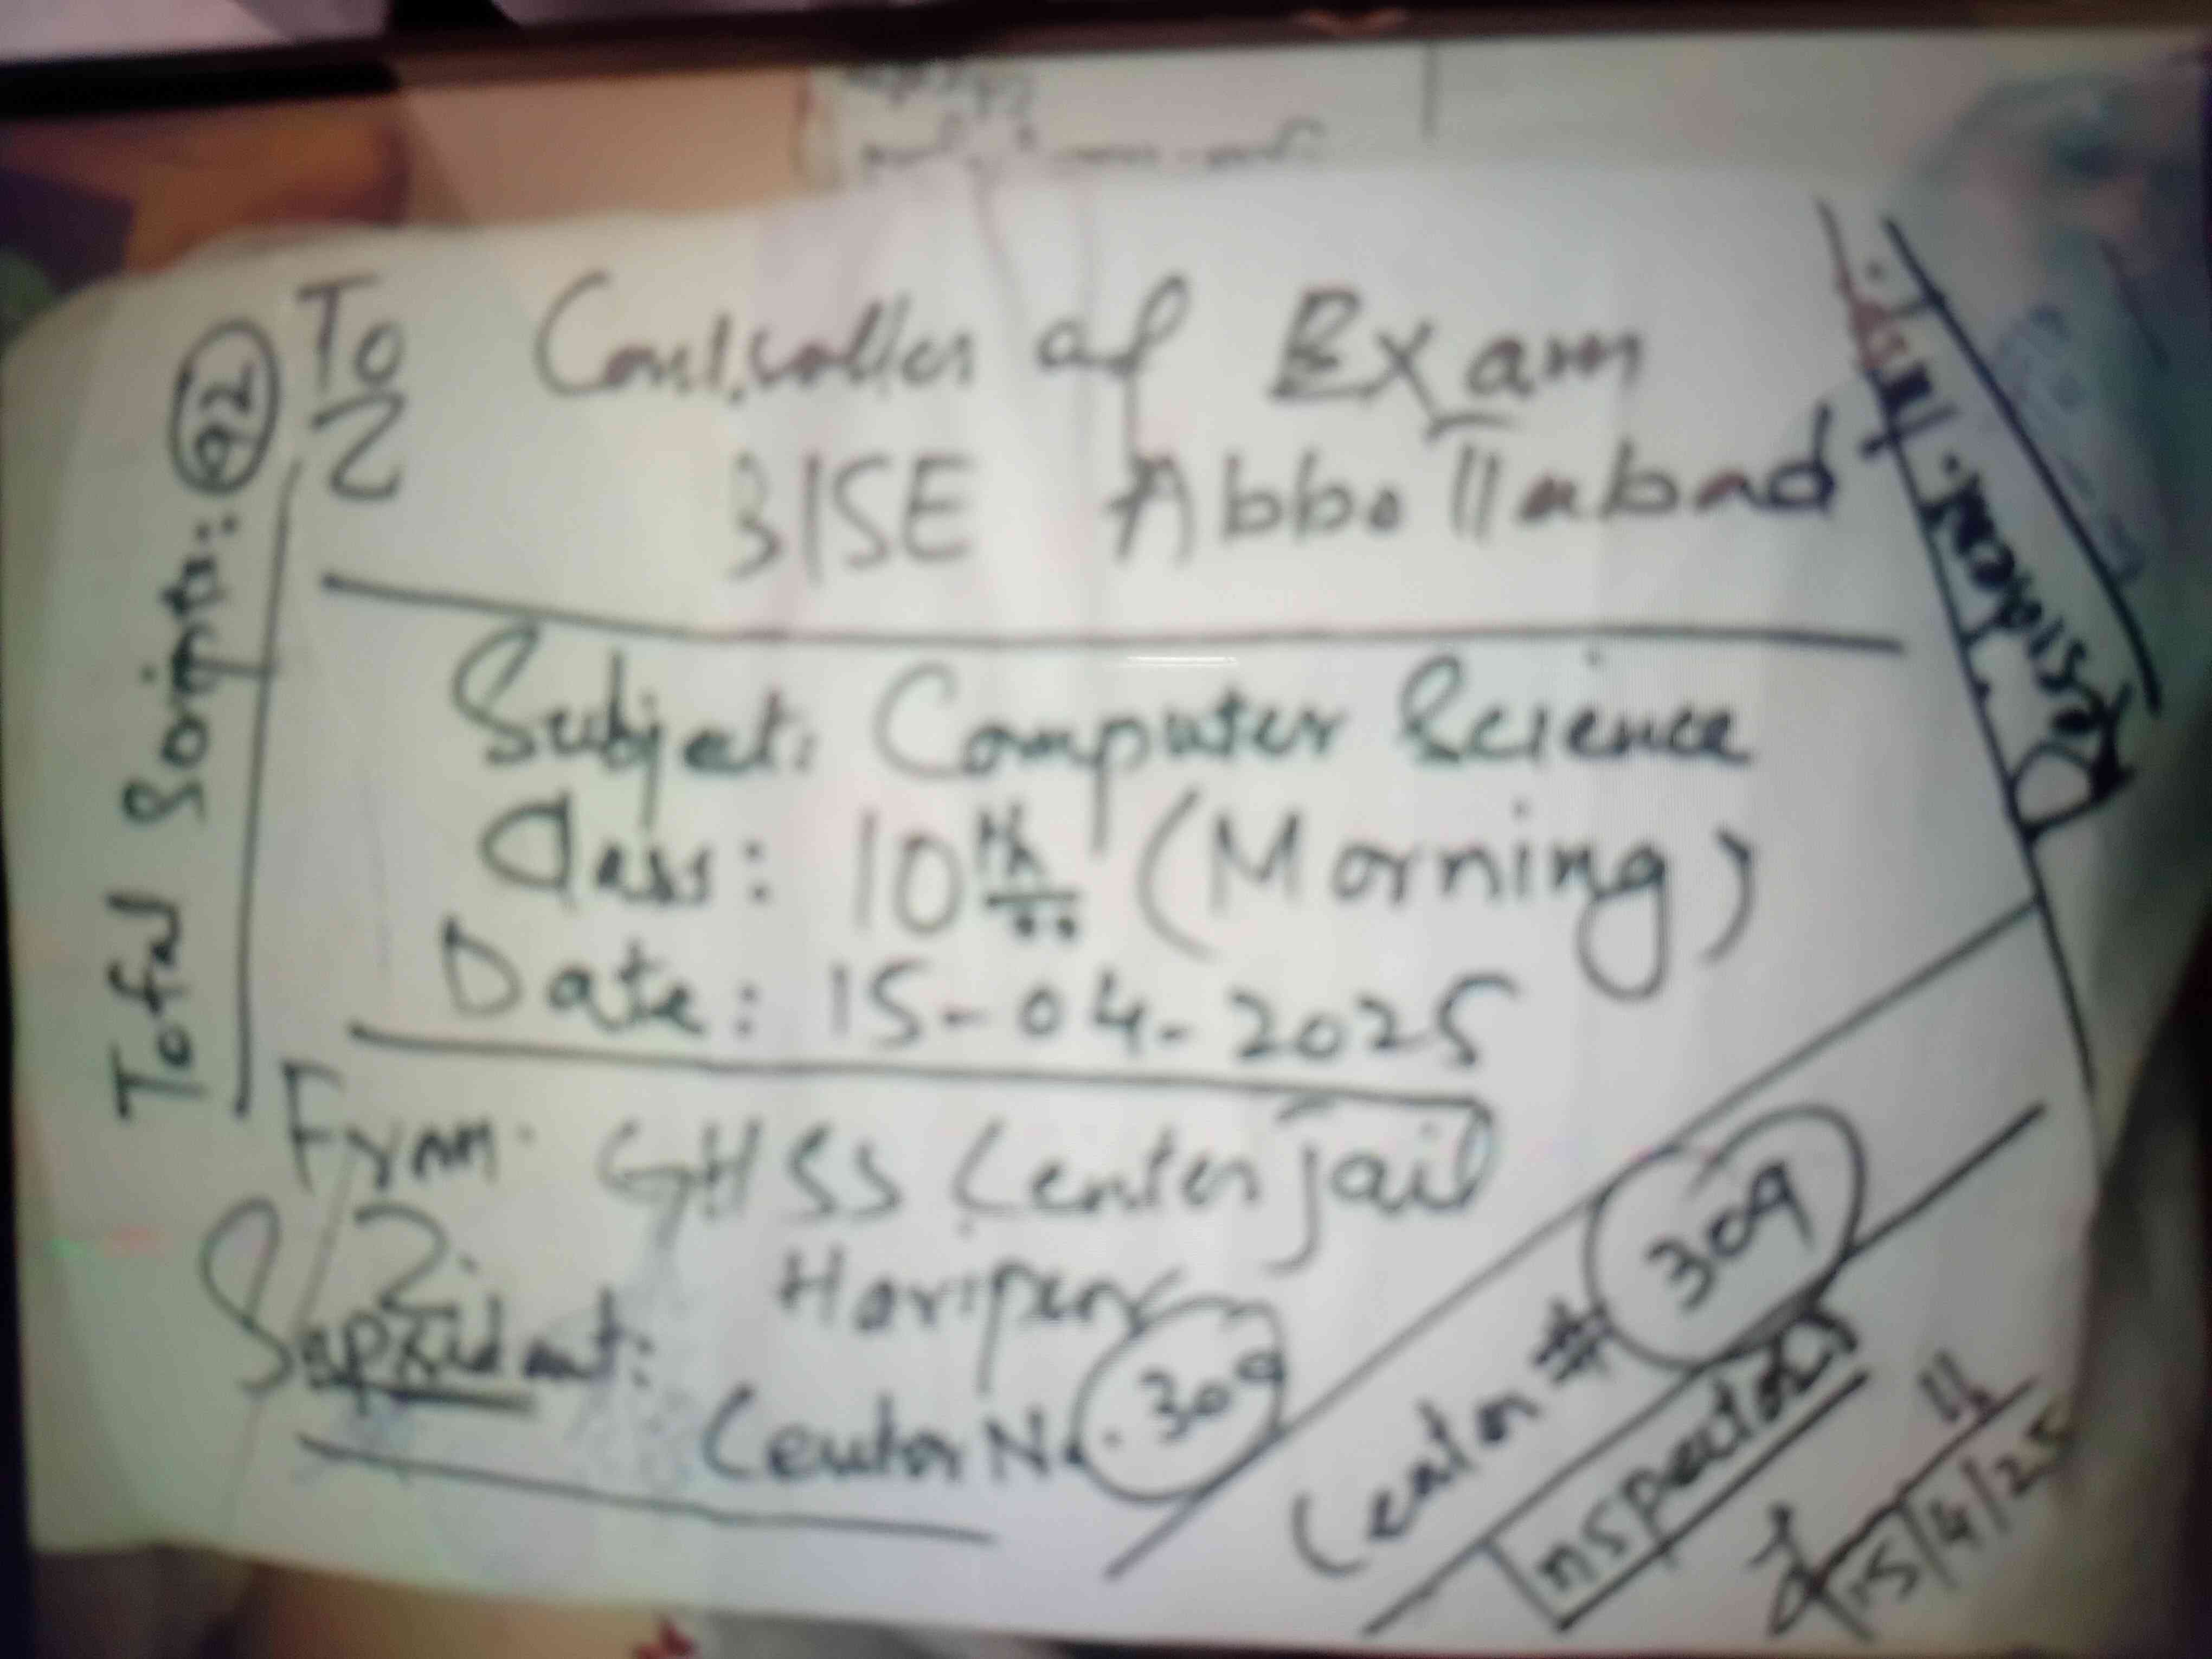 To
Controller of Exam
BISE Abbottabad
Total Scripts: 92
Subject: Computer Science
Class: 10th (Morning)
Date: 15-04-2025
From: GHSS Center Jail
Haripur
Center No. 309
Center # 309
Inspector
15/4/25
Resident